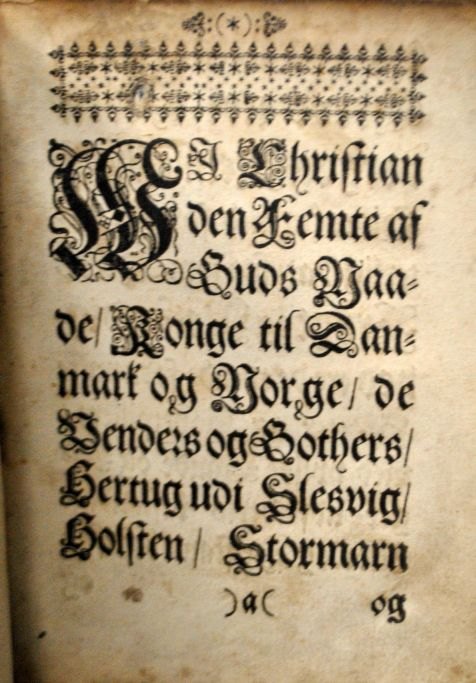 WJ Christian
den Femte af
Guds Naa⸗
de/ Konge til Dan⸗
mark og Norge/ de
Venders og Gothers/
Hertug udi Slesvig/
Holsten/ Stormarn
)a( og